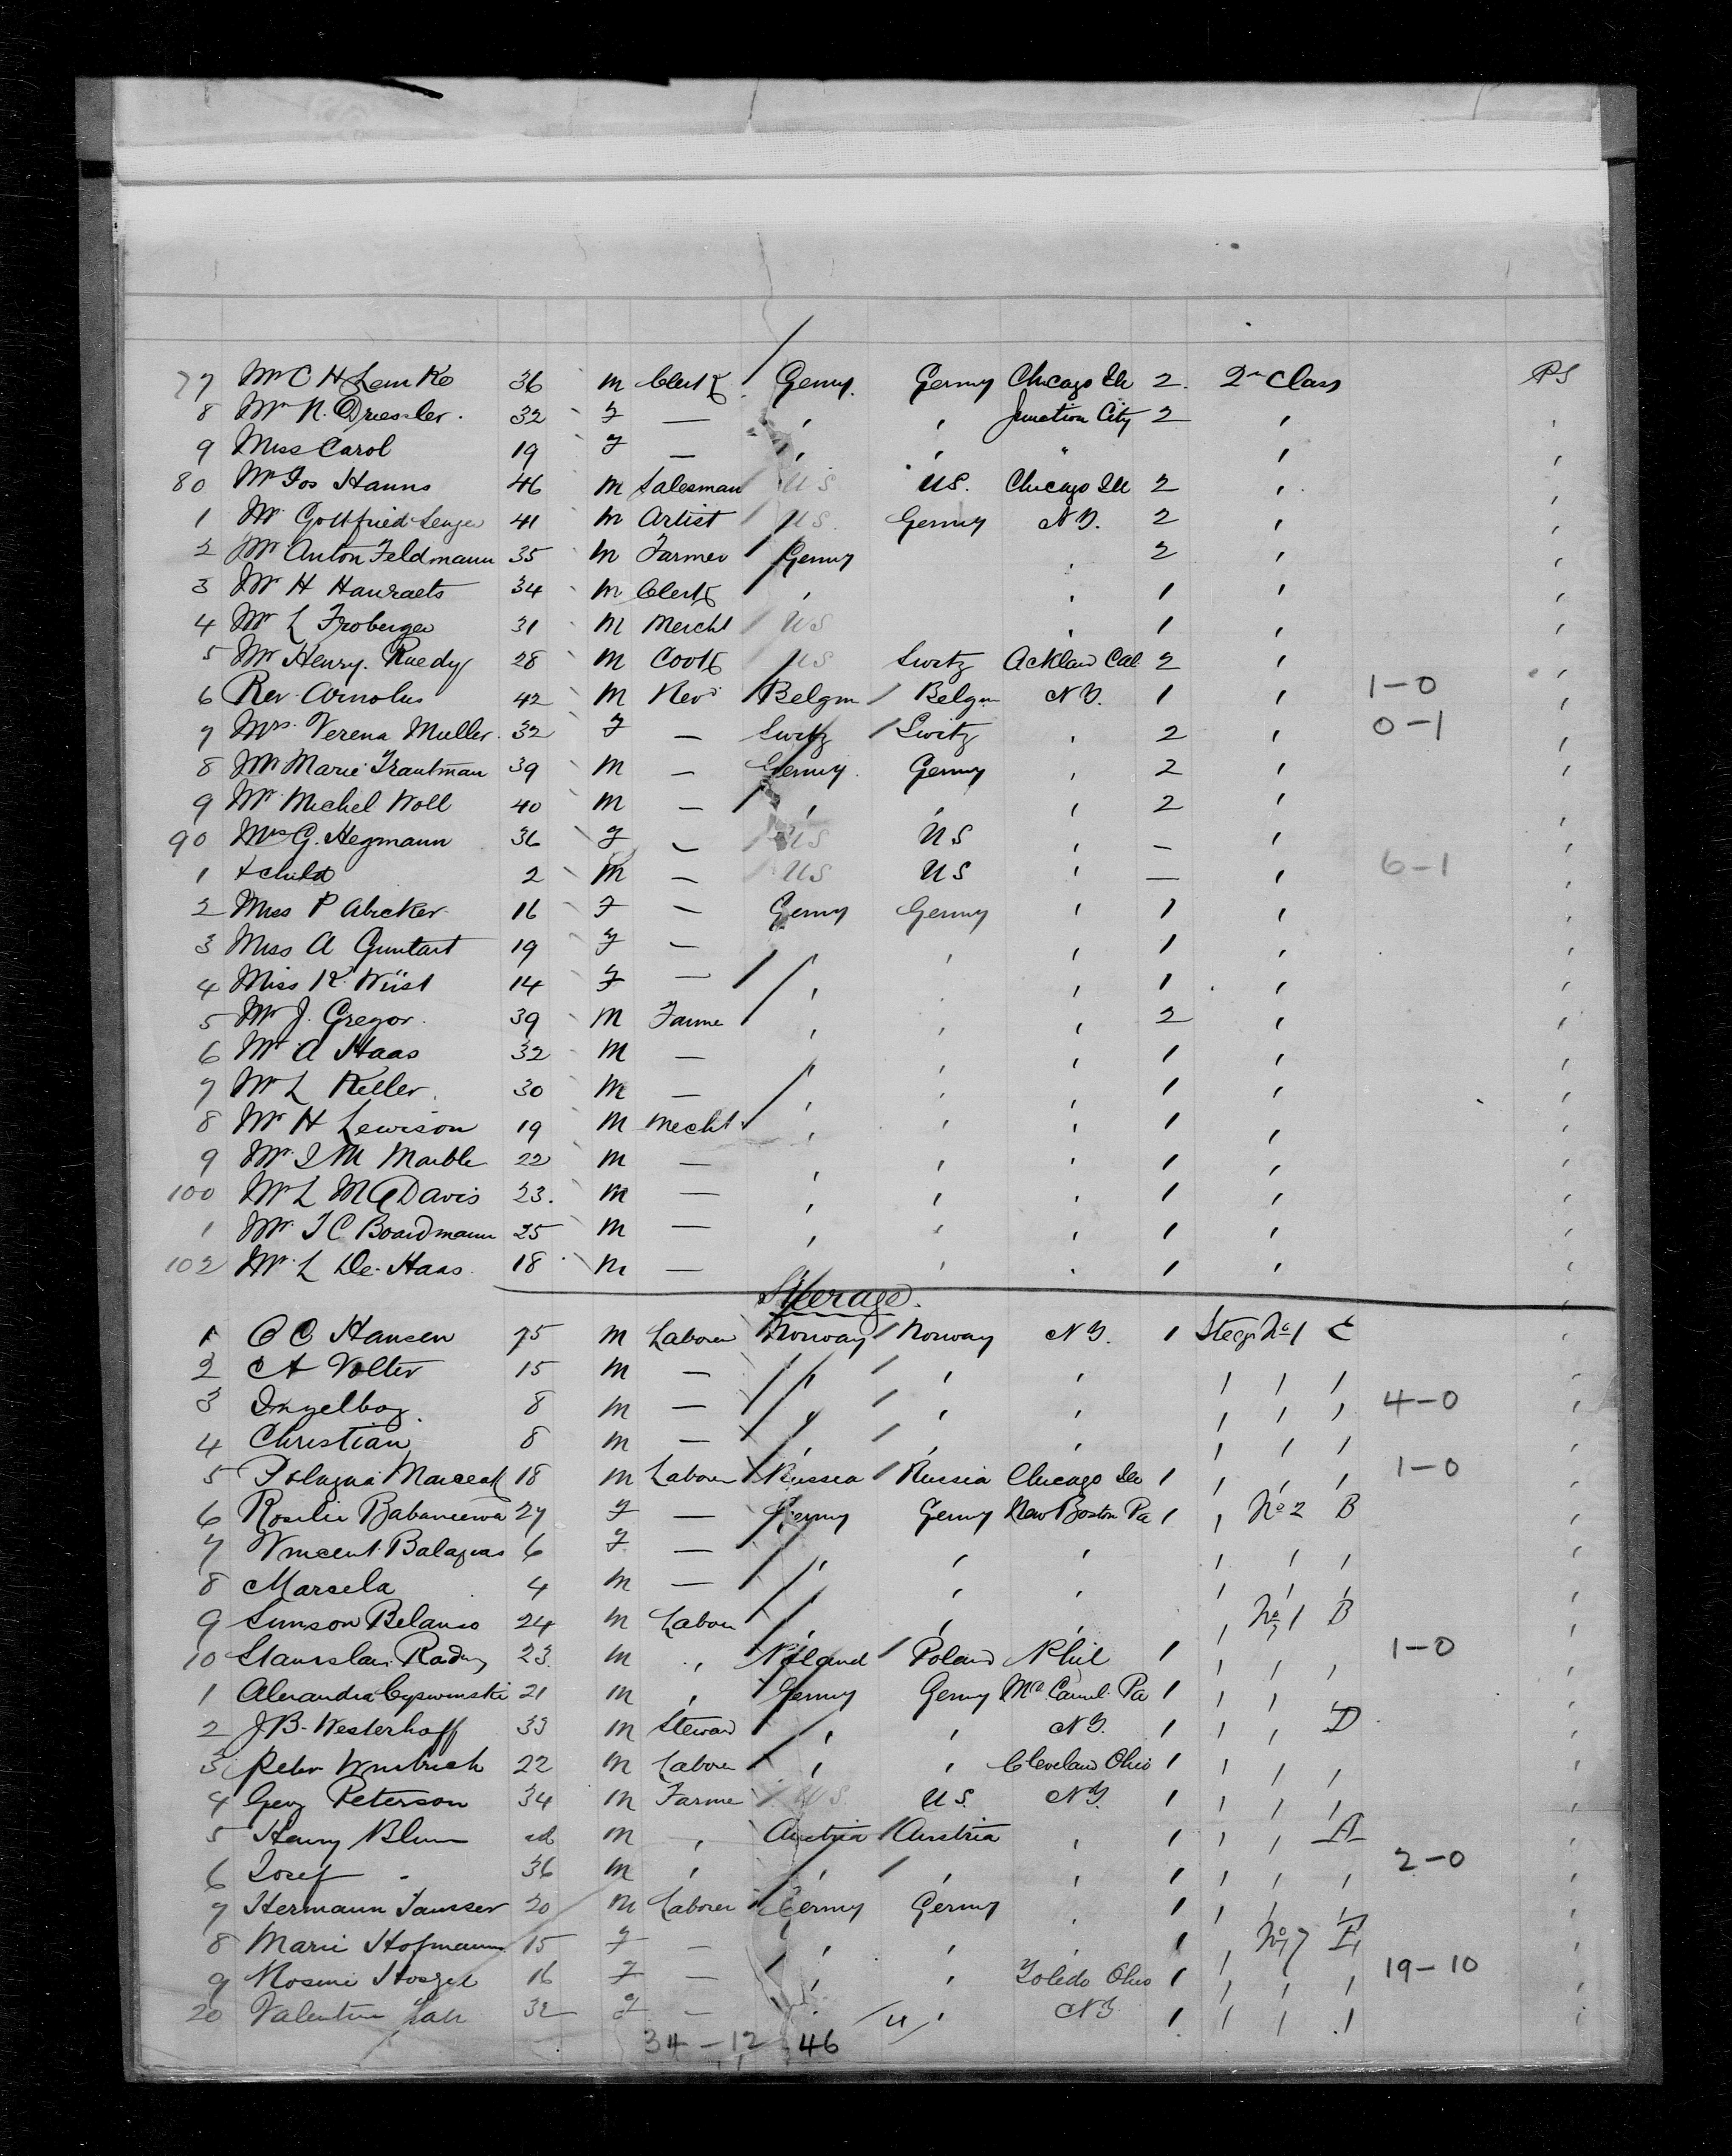 77 Mr C H Lemke 36 m Clerk Germy. Germy Chicago Ill 2. 2n Class PS
8 Mrs N. Driessler. 32 F — " " Junction City 2 "
9 Miss Carol 19 F — " " " "
80 Mr Jos Hanns 46 m Salesman US US. Chicago Ill 2 "
1 Mr Gottfried 41 m Artist US. Germy N.Y. 2 "
2 Mr Anton Feldmann 35 m Farmer Germy " 2 "
3 Mr H Hanraets 34 m Clerk " " 1 "
4 Mr L Froberger 31 m Mercht US " 1 "
5 Mr Henry. Ruedy 28 m Cook US Switz Ackland Cal 2 "
6 Rev. Arnolus 42 m Revd Belgm Belgm N.Y. 1 " 1-0
7 Mrs. Verena Muller. 32 F — Switz Switz " 2 " 0-1
8 Mr Marie Trautman 39 m — Germy. Germy " 2 "
9 Mr Michel Woll 40 m — " " " 2 "
90 Mrs G. Hegmann 36 F — US US " — "
1 + child 2 m — US US " — " 6-1
2 Miss P Abicker 16 F — Germy Germy " 1 "
3 Miss A Guntart 19 F — " " " 1 "
4 Miss K. Wüst 14 F — " " " 1 "
5 Mr J. Gregor. 39 m Farme " " " 2 "
6 Mr A Haas 32 m — " " " 1 "
7 Mr L Keller. 30 m — " " " 1 "
8 Mr H Lewison 19 m Mecht " " " 1 "
9 Mr. I M Marble 22 m — " " " 1 "
100 Mr L Mc Davis 23. m — " " " 1 "
1 Mr. T C Boardmann 25 m — " " " 1 "
102 Mr. L De Haas. 18 m — " " 1 "
Steerage.
1 O C Hansen 75 m Laborer Norway Norway N.Y. 1 Steeg No 1 C
2 A Volter 15 m — " " " " " "
3 Ingelbog. 8 m — " " " " " " 4-0
4 Christian 8 m — " " " " " "
5 18 m Laborer Russia Russia Chicago Ill 1 " " " 1-0
6 Rosilie 27 F — Germy Germy New Boston Pa 1 " No 2 B
7 Vincent 6 F — " " " " " "
8 Marsela 4 m — " " " " " "
9 Simson Belanso 24 m Labore " " " " No 1 B
10 Stanislaw 23. m " Poland Poland Phil 1 " " " 1-0
1 Alexandra 21 m " Germy Germy Pa 1 " "
2 J B. Westerhoff 33 m Steward " " N.Y. 1 " " D
3 Peter 22 m Labore " " Cleveland Ohio 1 " " "
4 Geog Peterson 34 m Farme US. US. N.Y. 1 " " "
5 Henry Blum ad m " Austria Austria " 1 " " A
6 Josef " 36 m " " " " 1 " " " 2-0
7 Hermann Janssen 20 m Laborer Germy Germy " 1 " " "
8 Marie Hofmann 15 F — " " " 1 " No 7
9 Rosine 16 F — " " Toledo Ohio 1 " " " 19-10
20 Valentin 32 F — " " N.Y. 1 " " "
34-12 46